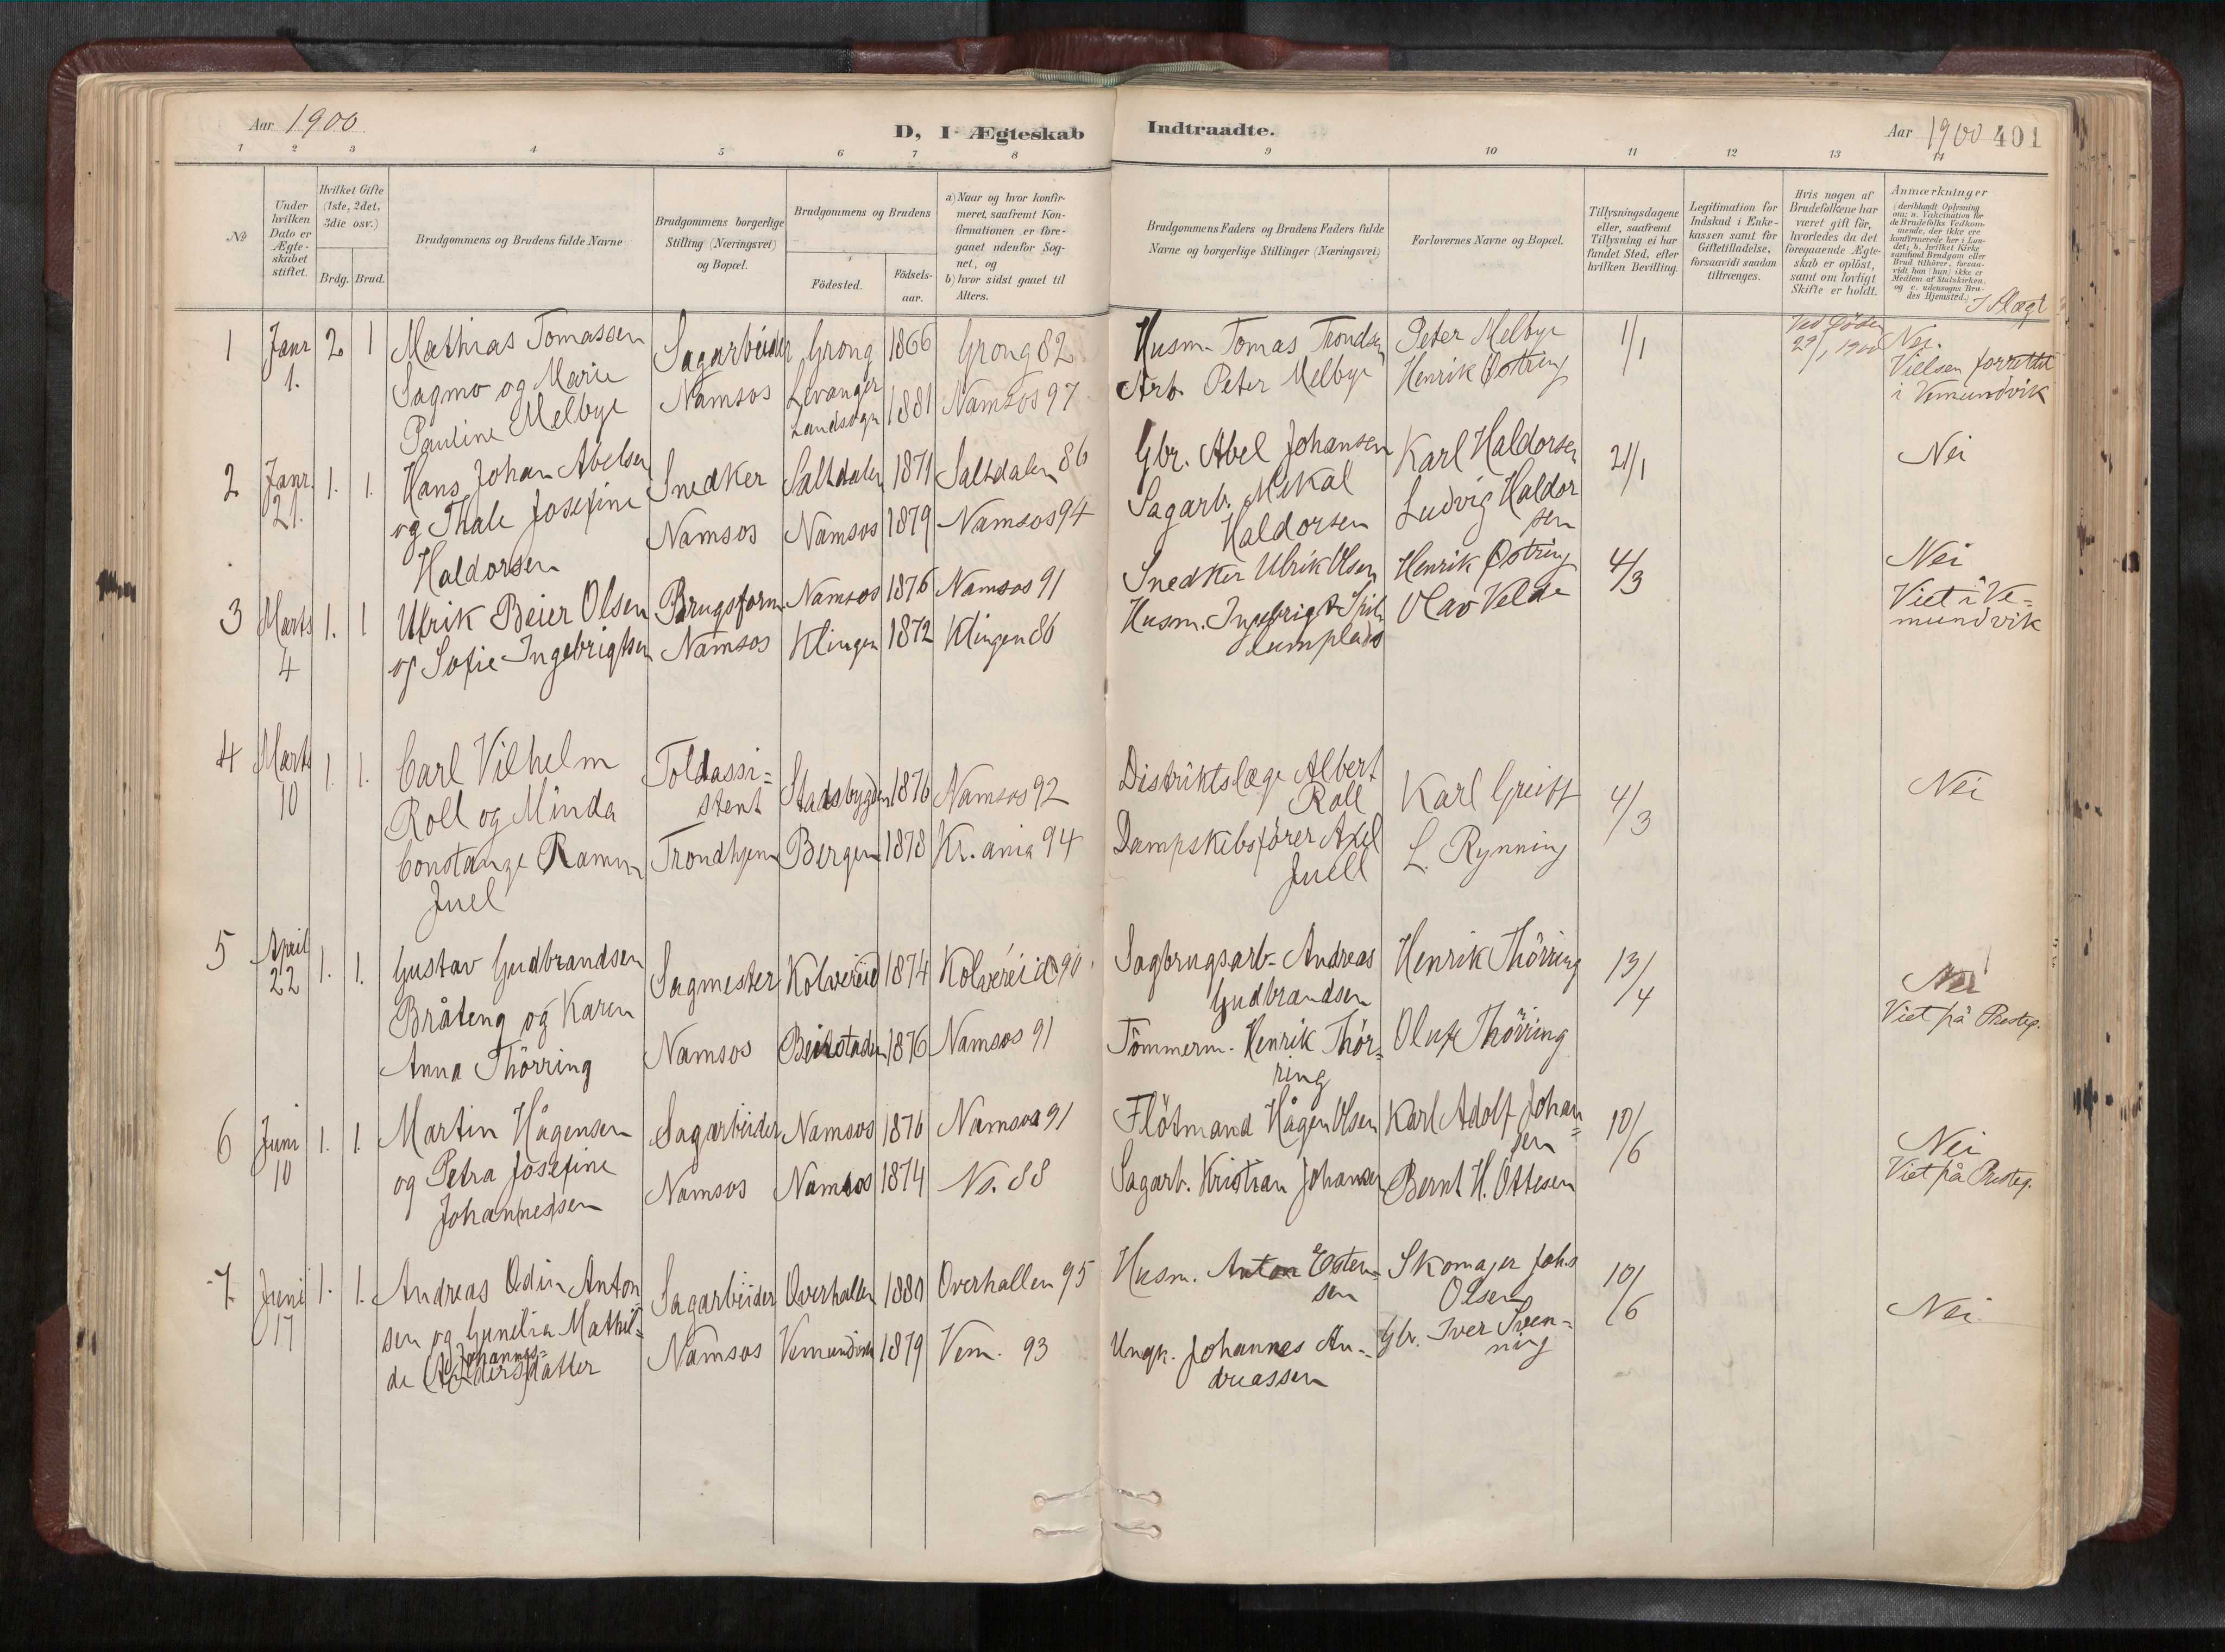 Aar 1900
D, I Ægteskab
Indtraadte.
Aar 1900 401
1 2 3 4 5 6 7 8 9 10 11 12 13 14
No
Under hvilken Dato er Ægteskabet stiftet.
Hvilket Gifte (1ste, 2det, 3die osv.)
Brdg. Brud.
Brudgommens og Brudens fulde Navne
Brudgommens borgerlige Stilling (Næringsvei) og Bopæl.
Brudgommens og Brudens
Födested.
Födsels-aar.
a) Naar og hvor konfirmeret, saafremt Konfirmationen er foregaaet udenfor Sognet, og
b) hvor sidst gaaet til Alters.
Brudgommens Faders og Brudens Faders fulde Navne og borgerlige Stillinger (Næringsvei)
Forlovernes Navne og Bopæl.
Tillysningsdagene eller, saafremt Tillysning ei har fundet Sted, efter hvilken Bevilling.
Legitimation for Indskud i Enkekassen samt for Giftetilladelse, forsaavidt saadan tiltrænges.
Hvis nogen af Brudefolkene har været gift för, hvorledes da det foregaaende Ægteskab er oplöst, samt om lovligt Skifte er holdt.
Anmærkninger (deriblandt Oplysning om: a. Vakcination for de Brudefolks Vedkommende, der ikke ere konfirmerede her i Landet; b. hvilket Kirkesamfund Brudgom eller Brud tilhörer, forsaavidt han (hun) ikke er Medlem af Statskirken, og c. udensogns Brudes Hjemsted.)
I Slægt
1 Janr 2 1 Mathias Tomassen Sagarbeider Grong 1866 Grong 82 Husm. Tomas Trondsen Peter Melbye 1/1 Ved Döden Nei.
1. Sagmo og Marie Namsos Levanger Landsogn 1881 Namsos 97 Arb. Peter Melbye Henrik Østring 29/1 1900 Vielsen forrettet
Pauline Melbye i Vemundvik
2 Janr. 1. 1. Hans Johan Abelsen Snedker Saltdalen 1871 Saltdalen 86 Gbr. Abel Johansen Karl Haldorsen 21/1 Nei
21. og Thale Josefine Namsos Namsos 1879 Namsos 94 Sagarb. Mikal Ludvig Haldor
Haldorsen Haldorsen sen
3 Marts 1. 1 Ulrik Beier Olsen Brugsform. Namsos 1876 Namsos 91 Snedker Ulrik Olsen Henrik Østring 4/3 Nei
4 og Sofie Ingebrigtsen Namsos Klingen 1872 Klingen 86 Husm. Ingebrigt Spil Olav Velde Viet i Ve=
lumplads mundvik
4 Marts 1. 1. Carl Vilhelm Toldassi= Stadsbygden 1876 Namsos 92 Distriktslæge Albert Karl Greift 4/3 Nei
10 Roll og Minda stent Roll
Constanze Ramm Trondhjem Bergen 1878 Kr.ania 94 Dampskibsförer Axel L. Rynning
Juel Juell
5 April 1. 1. Gustav Gudbrandsen Sagmester Kolvereid 1874 Kolvereid 90 Sagbrugsarb. Andreas Henrik Thörring 13/4 Nei
22 Bråteng og Karen Gudbrandsen Viet på Presteg.
Anna Thörring Namsos Beitstaden 1876 Namsos 91 Tömmerm. Henrik Thör= Oluf Thörring
ring
6 Juni 1. 1. Martin Hågensen Sagarbeider Namsos 1876 Namsos 91 Flötmand Hågen Olsen Karl Adolf Johan= 10/6 Nei
10 og Petra Josefine sen Viet på Presteg.
Johannessen Namsos Namsos 1874 Ns. 88 Sagarb. Kristian Johansen Bernt H. Ottesen
7 Juni 1. 1. Andreas Odin Anton Sagarbeider Overhallen 1880 Overhallen 95 Husm. Anton Esten= Skomajer Johs 10/6 Nei.
17 sen og Gunelia Mathil= sen Olsen
Johannes=
de datter Namsos Vemundvik 1879 Vem. 93 Ungk. Johannes An= Gbr. Iver Sven=
dreassen ning